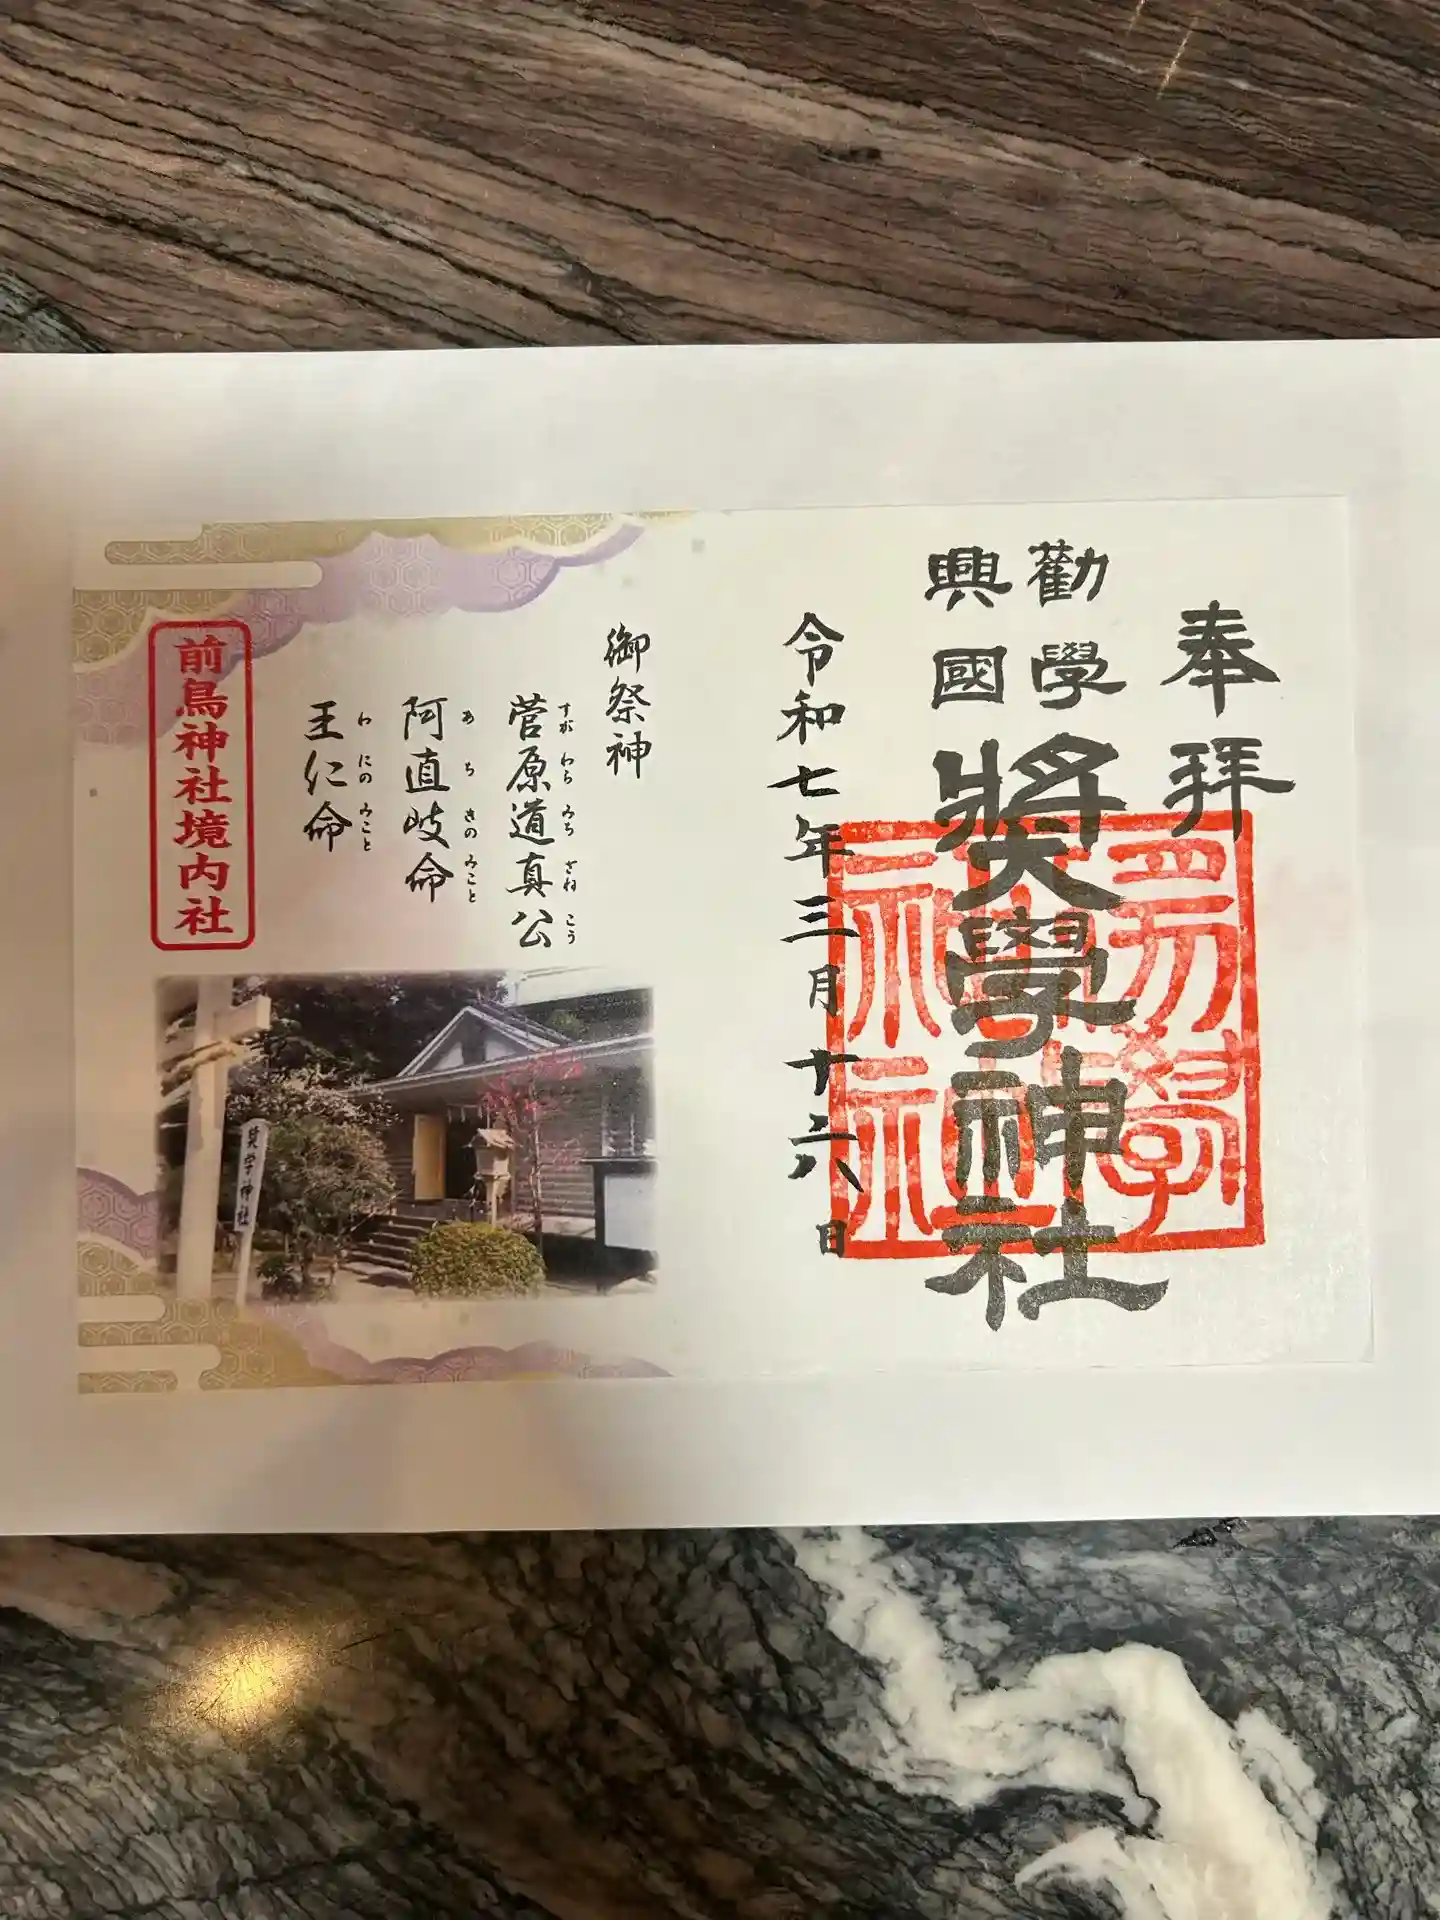 奉拝
勸學
興國
奬學神社
令和七年三月十六日
御祭神
菅原道真公
すがわらみちざねこう
阿直岐命
あちきのみこと
王仁命
わにのみこと
前鳥神社境内社
奨学神社